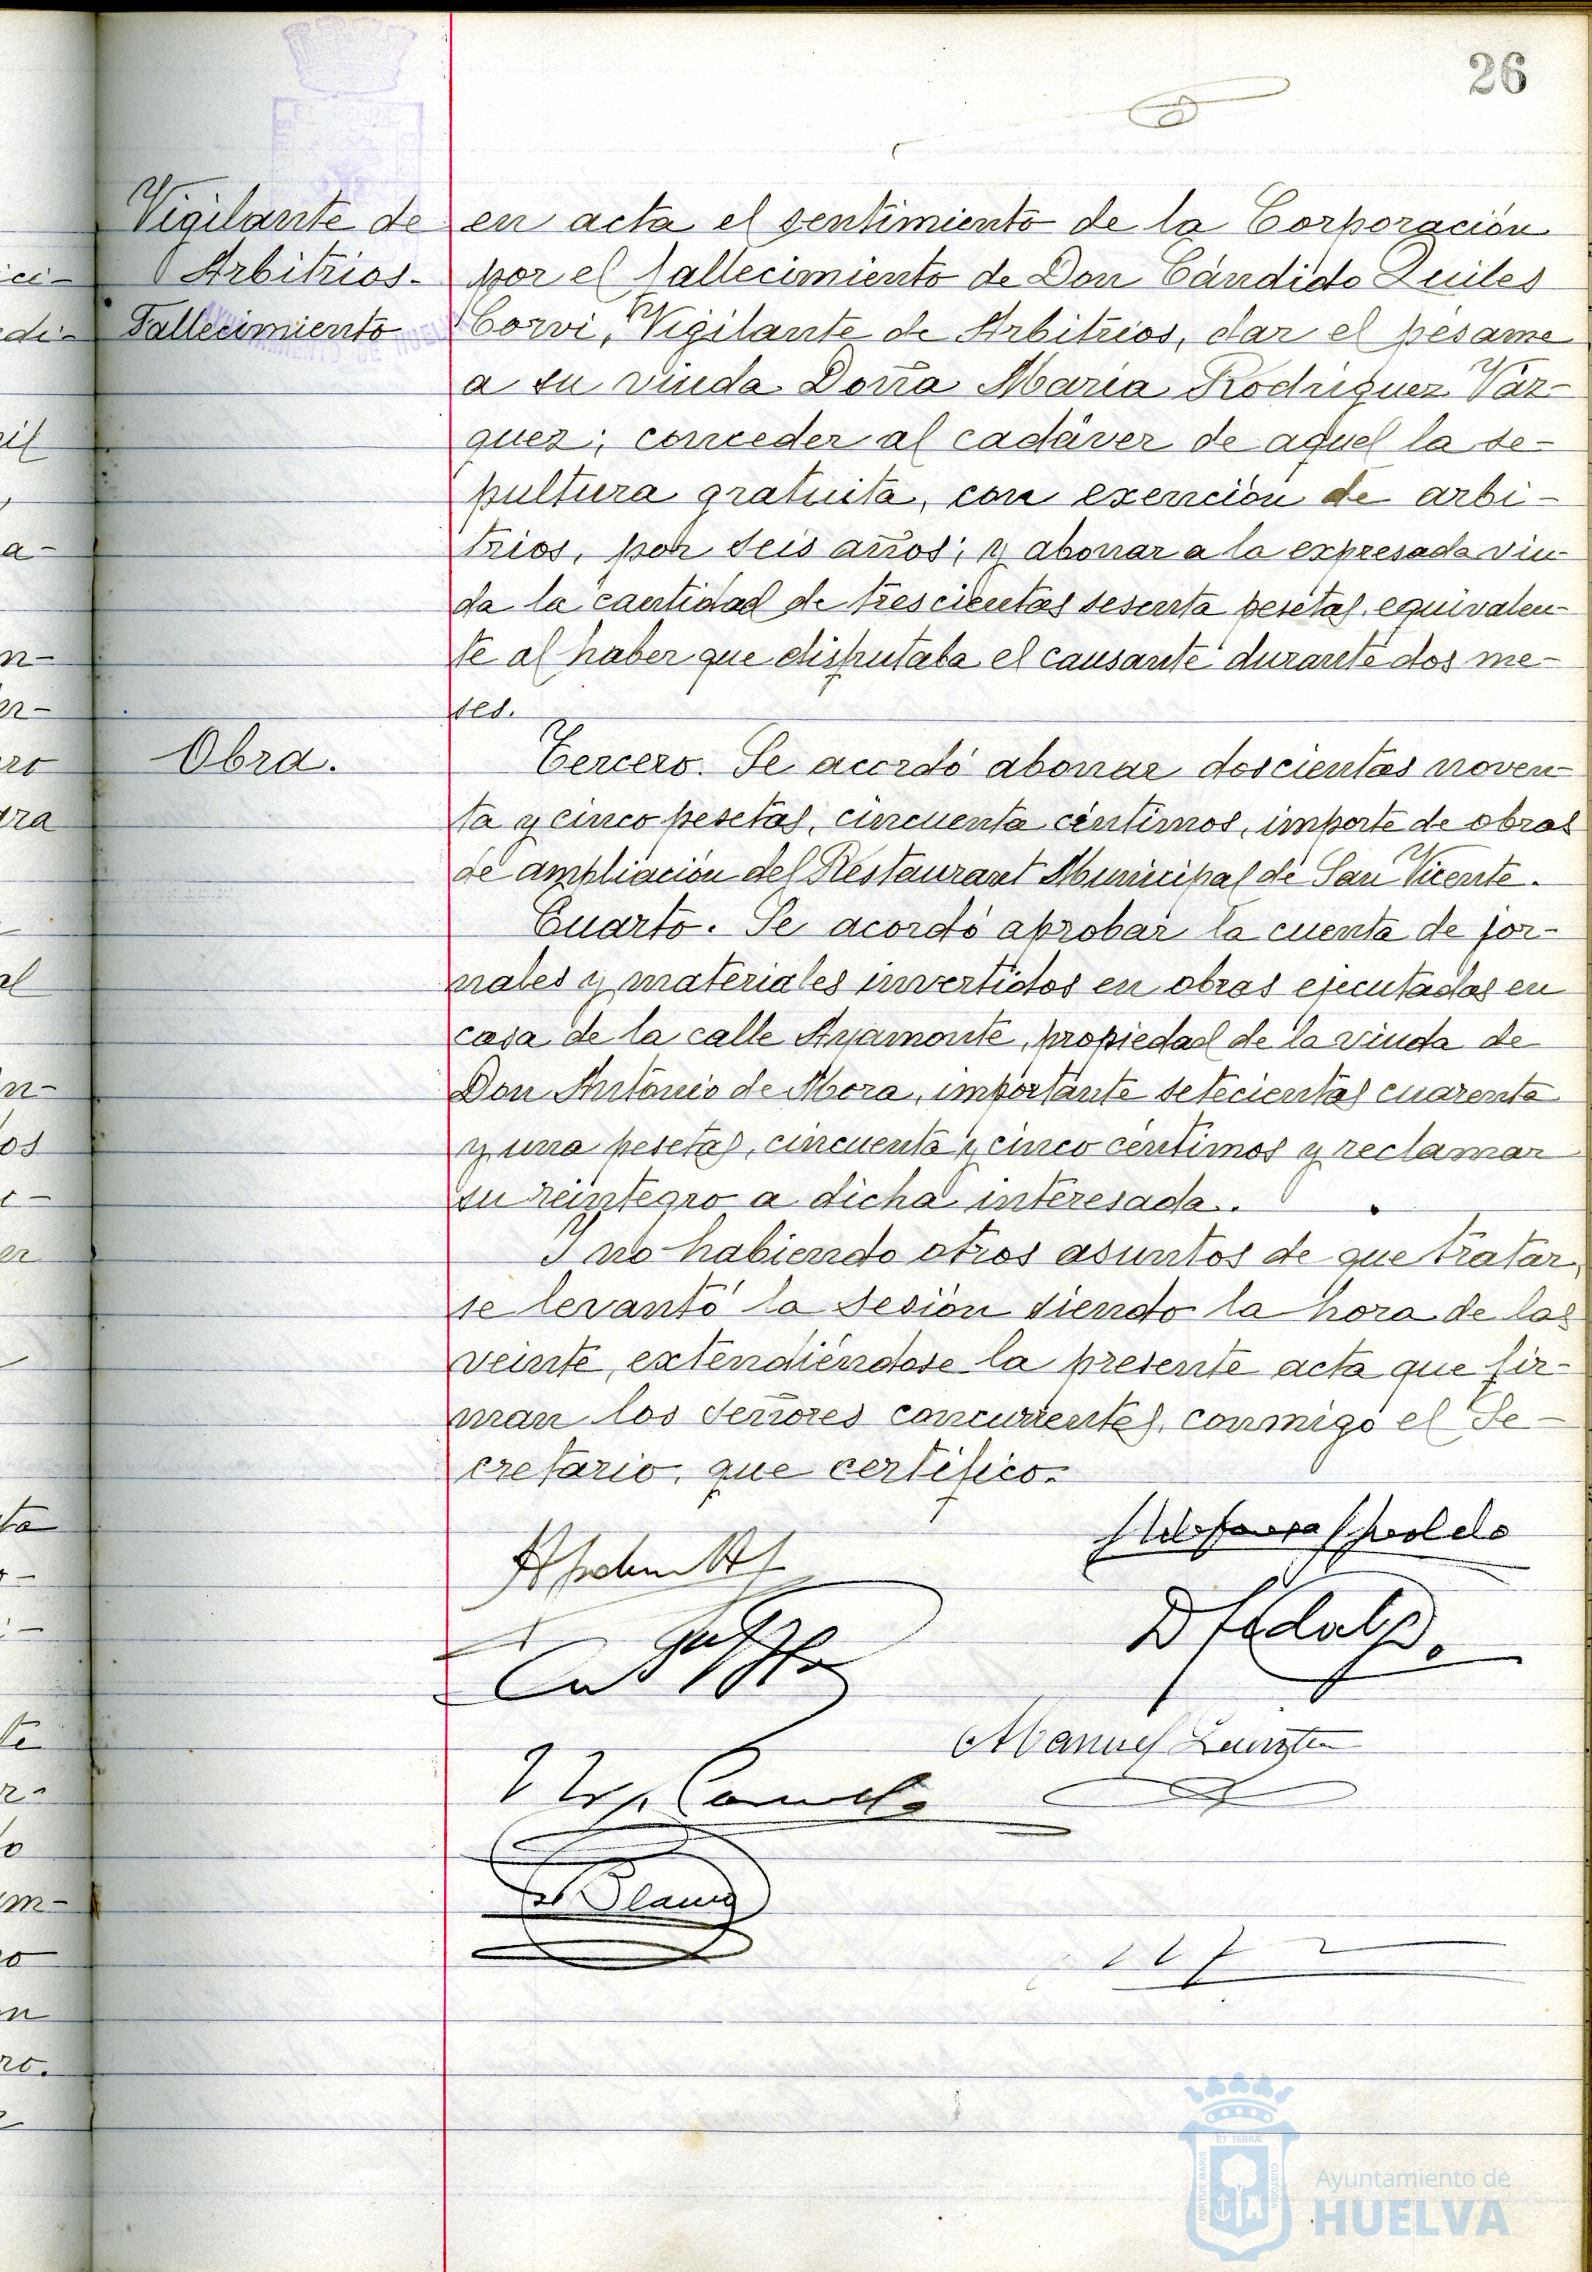 26
Vigilante de
Arbitrios.
Fallecimiento
en acta el sentimiento de la Corporación
por el fallecimiento de Don Cándido Quiles
Corvi, Vigilante de Arbitrios, dar el pésame
a su viuda Doña María Rodriguez Váz-
quez; conceder al cadáver de aquel la se-
pultura gratuita, con exención de arbi-
trios, por seis años; y abonar a la expresada viu-
da la cantidad de trescientas sesenta pesetas, equivalen-
te al haber que disfrutaba el causante durante dos me-
ses.
Obra.
Tercero. Se acordó abonar doscientas noven-
ta y cinco pesetas, cincuenta céntimos, importe de obras
de ampliación del Restaurant Municipal de San Vicente.
Cuarto. Se acordó aprobar la cuenta de jor-
nales y materiales invertidos en obras ejecutadas en
casa de la calle Ayamonte, propiedad de la viuda de
Don Antonio de Mora, importante setecientas cuarenta
y una pesetas, cincuenta y cinco céntimos y reclamar
su reintegro a dicha interesada.
Y no habiendo otros asuntos de que tratar,
se levantó la sesión siendo la hora de las
veinte, extendiéndose la presente acta que fir-
man los señores concurrentes, conmigo el Se-
cretario, que certifico.
Manuel
Blanco
Ayuntamiento de
HUELVA